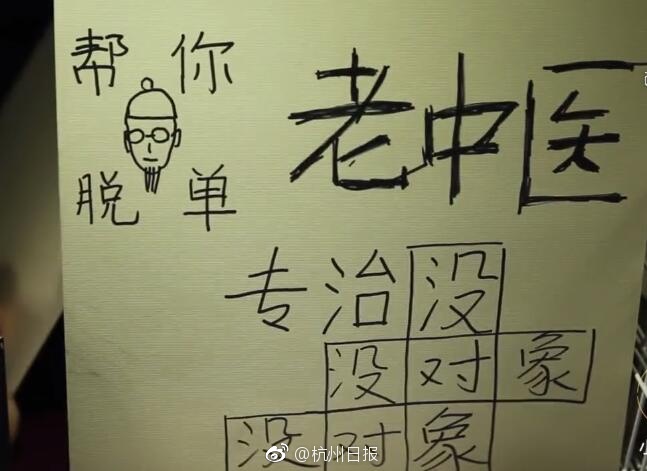 帮你
脱单
老中医
专治没
没对象
没对象
@杭州日报